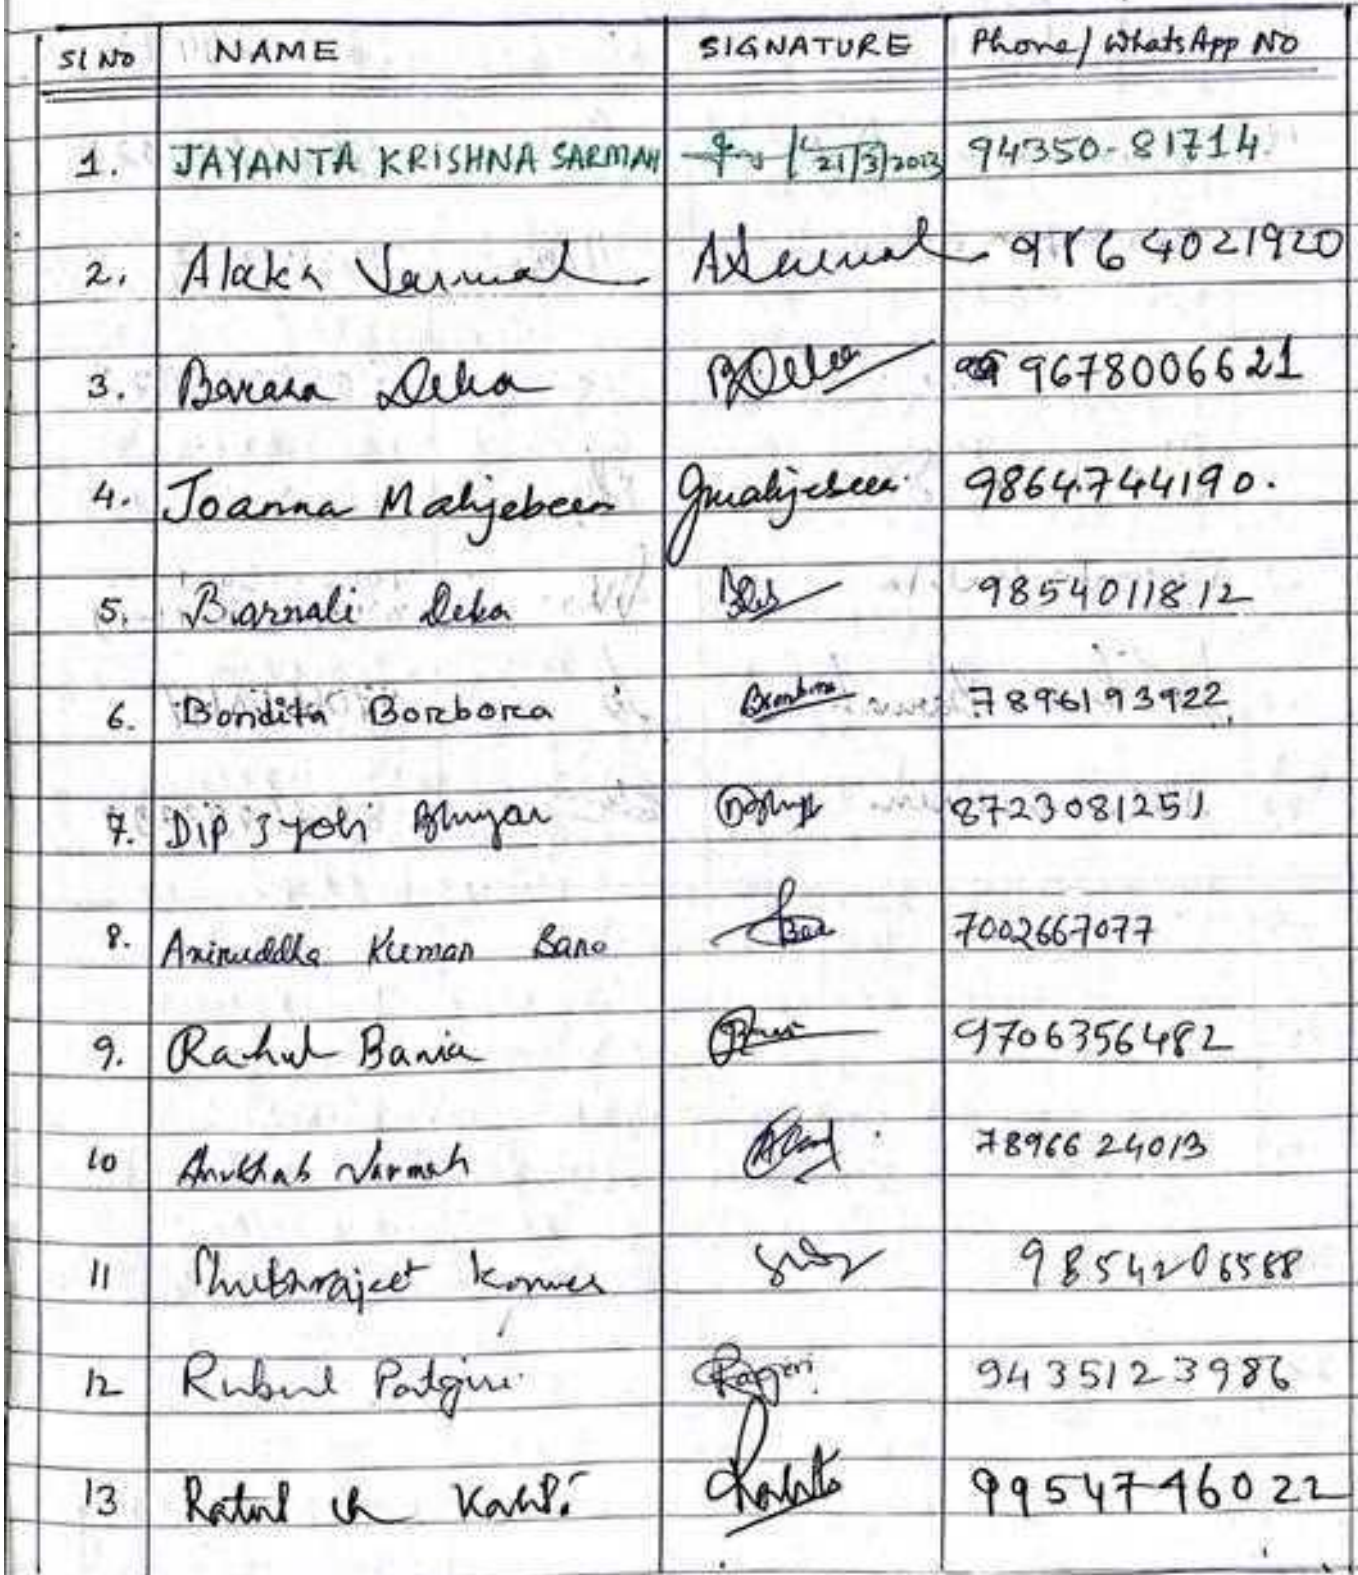 SL NO NAME SIGNATURE Phone/ WhatsApp NO
1. JAYANTA KRISHNA SARMAH 21/3/2023 94350-81714
2. Alaka Sarmah ASarmah 9864021920
3. Banana Deka BDeka 9678006621
4. Joanna Mahjebeen Jmahjebeen 9864744190.
5. Barnali Deka 9854011812
6. Bondita Borbora Borbora 7896193922
7. Dip Jyoti Bhuyan 8723081251
8. Aniruddha Kumar Baro 7002667077
9. Rahul Bania 9706356482
10 Anubhab Sarmah 78966 24013
11 Shubhrajeet Konwer 9854206588
12 Rubul Patgiri 9435123986
13 Ratul ch Kalita 9954746022